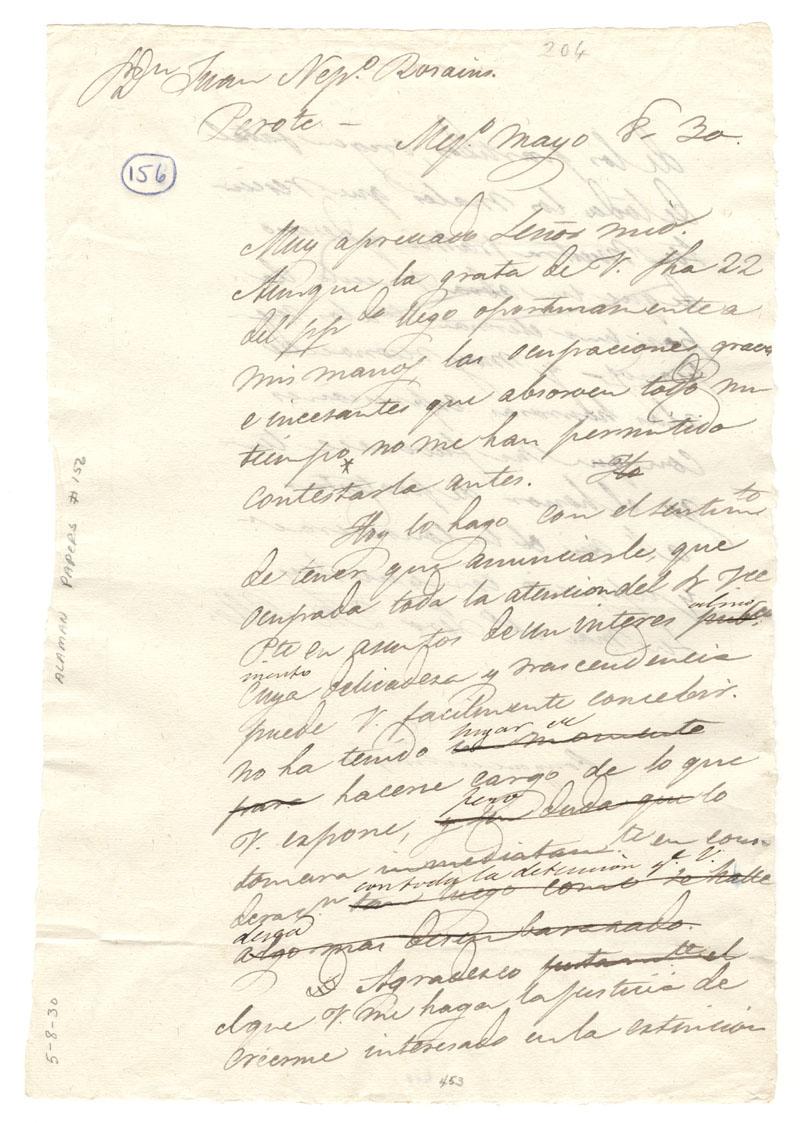 204
Sr. Dn Juan Nepo. Rosains.
Perote – Mejo. mayo 8– 30.
156
Muy apreciado Señor mio.
Aunque la grata de V. fha 22
del pp do llego oportunamente a
mis manos las ocupaciones graves
e incesantes que absorven todo mi
tiempo, no me han permitido
contestarla antes. Yo
Hoy lo hago con el sentimto
de tener que anunciarle, que
ocupada toda la atencion del Sr Vce
Pte en asuntos de un interes
cuya delicadesa y trascendencia
puede V. facilmente concebir.
no ha tenido lugar de los momento
para hacerse cargo de lo que
V. expone, pero y sin duda que lo
tomara inmediatamte en consi-
deracn con toda la detencion qe. V. tan luego como se halle
desea algo mas desembarasado.
Agradesco justamte el
el que V. me haga la justicia de
creerme interesado en la extincion
453
ALAMAN PAPERS # 152
5-8-30